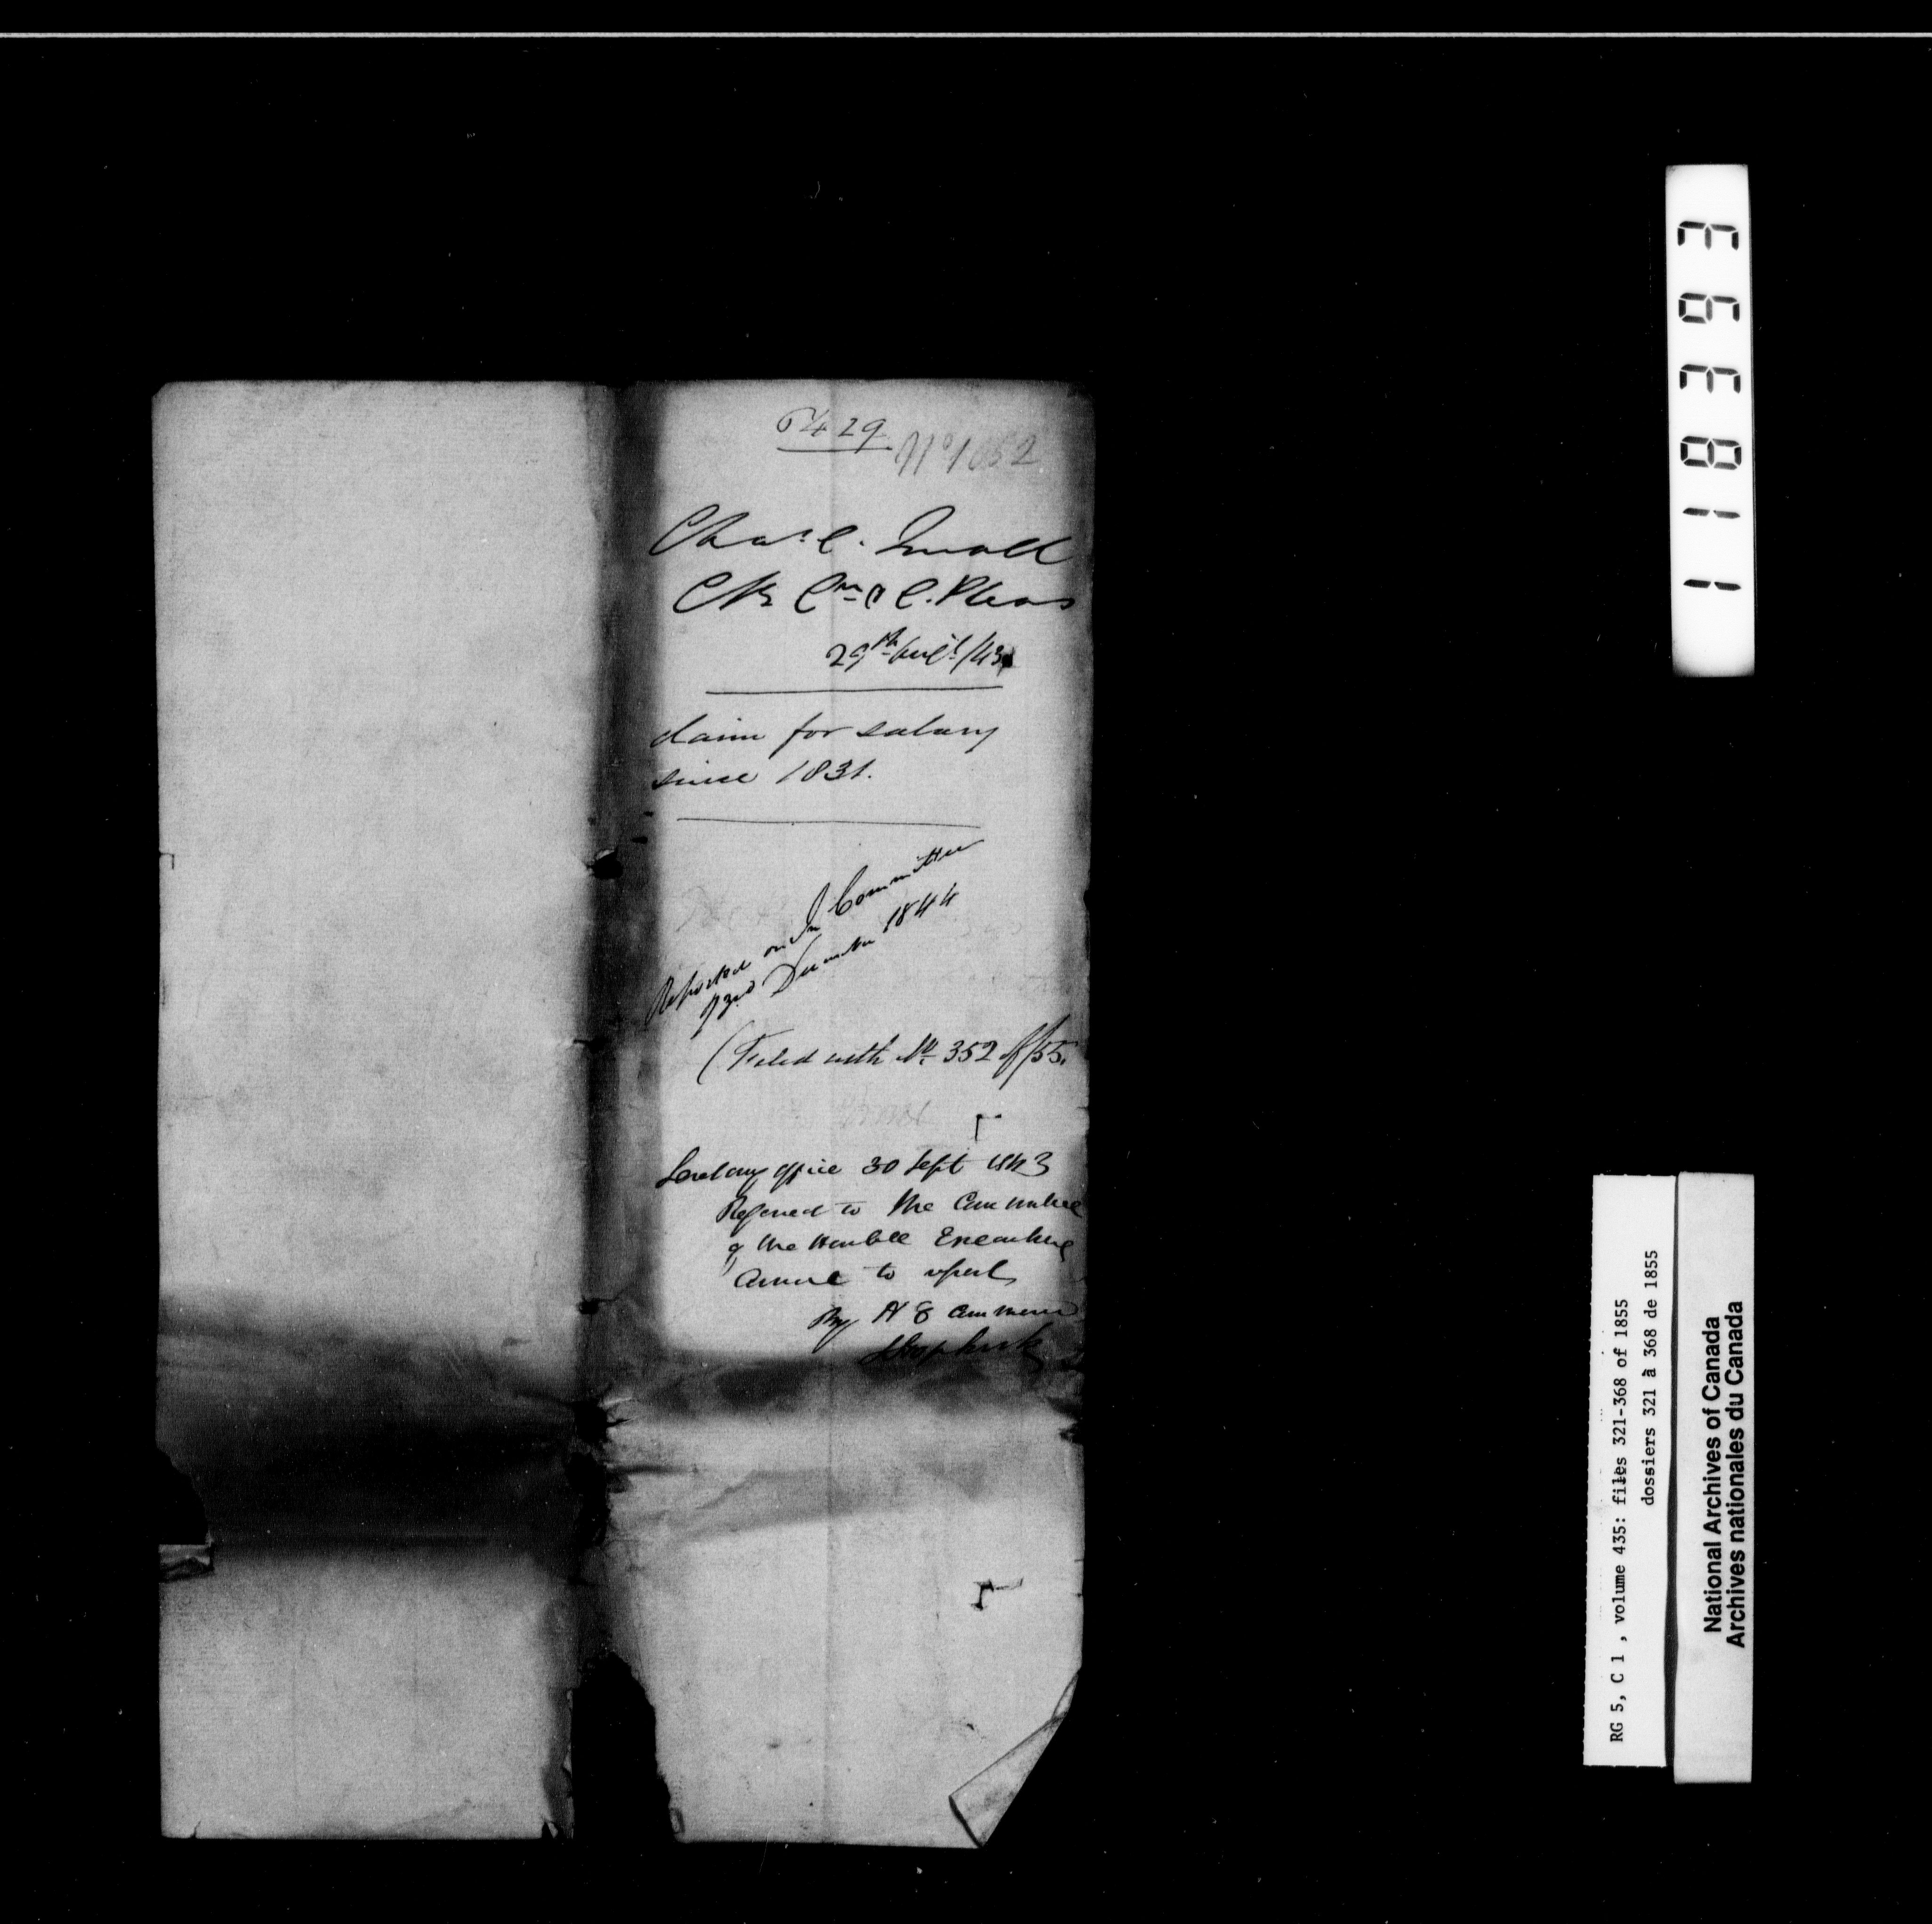 6429
No 1052
Chas. C. Small
Clk Crn & C. Pleas
29th Augt /43
claim for salary
since 1831.
Reported on In Committee
23rd December 1844
(Filed with No 352 of /55.
Secretary office 30 Sept 1843
Referred to the Committee
of the Honble Executive
Council to report
By H E Command
1 1 8 3 6 3
RG 5, C 1 , volume 435: files 321-368 of 1855
dossiers 321 à 368 de 1855
National Archives of Canada
Archives nationales du Canada